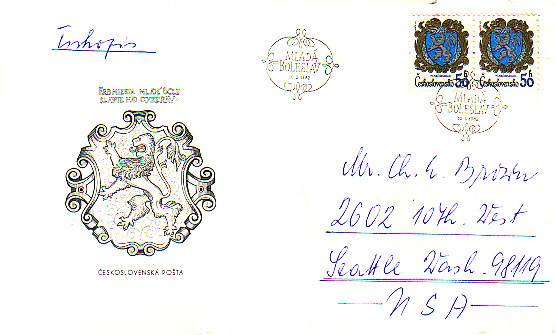 Tiskopis
MLADÁ
BOLESLAV
Československo 50 h
Československo 50 h
MLADÁ
BOLESLAV
ČESKOSLOVENSKÁ POŠTA
Mr. Ch. E.
2602 10th. West
Seattle Wash. 98119
USA